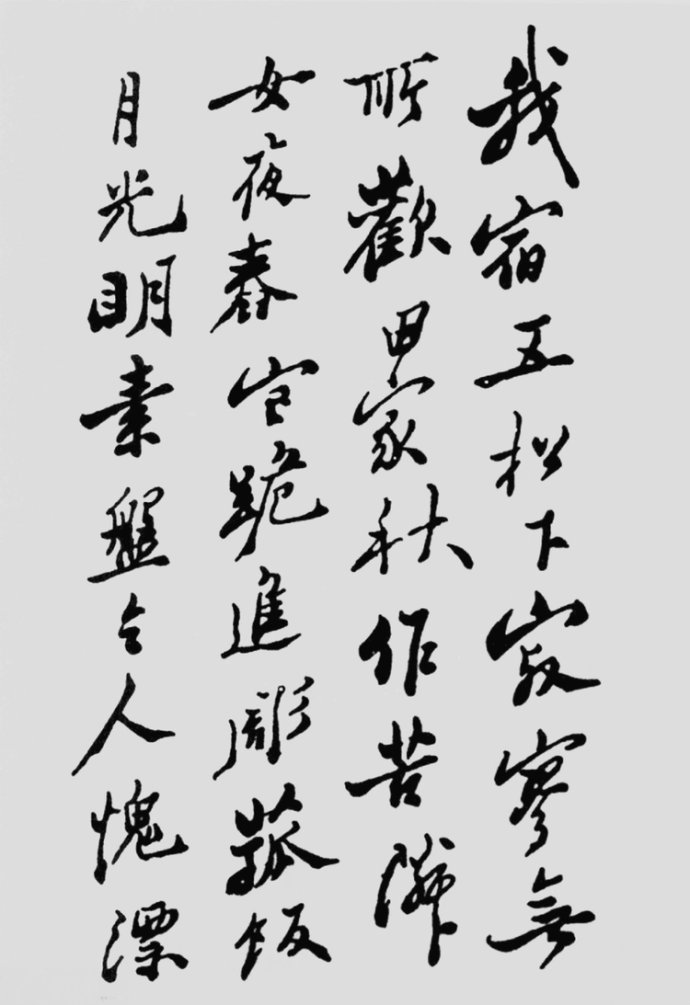 我宿五松下寂寥無
所歡田家秋作苦隣
女夜舂寒跪進彫菰飯
月光明素盤令人愧漂